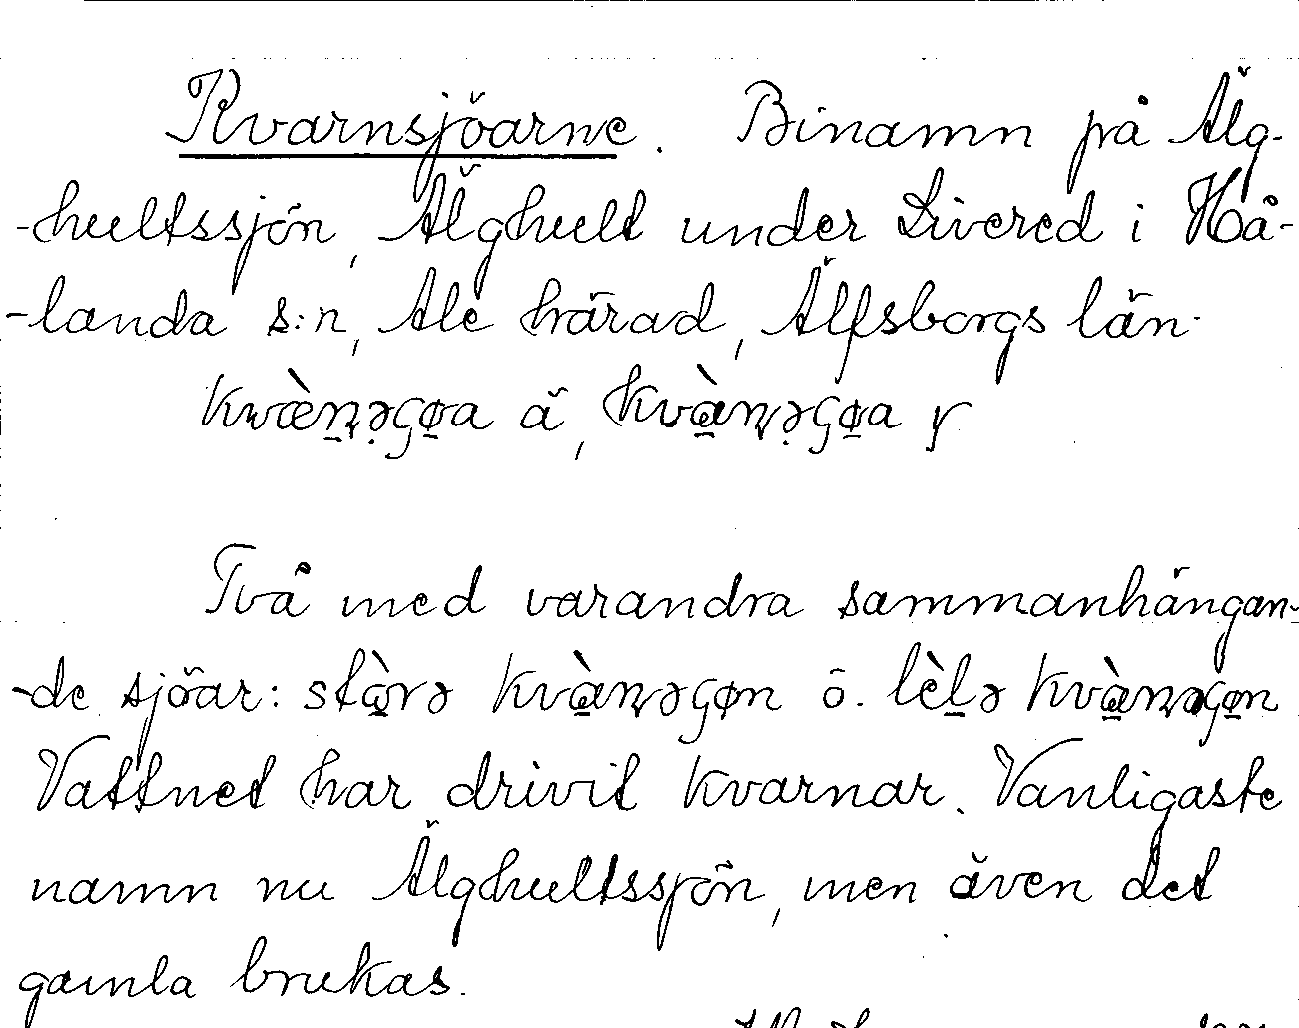 Kvarnsjöarne. Binamn på Älg-
-hultssjön, Älghult under Livered i Hå-
-landa s:n, Ale härad, Älfsborgs län.
kwæ̀n̠ə̣ɕø̠a ä, kvɑ̠̀nə̣ɕø̠a y
Två med varandra sammanhängan-
-de sjöar: stɑ̠̀rə kvɑ̠̀nəɕøn o. lèl̠ə kvɑ̠̀nəɕø̠n
Vattnet har drivit kvarnar. Vanligaste
namn nu Älghultssjön, men även det
gamla brukas.